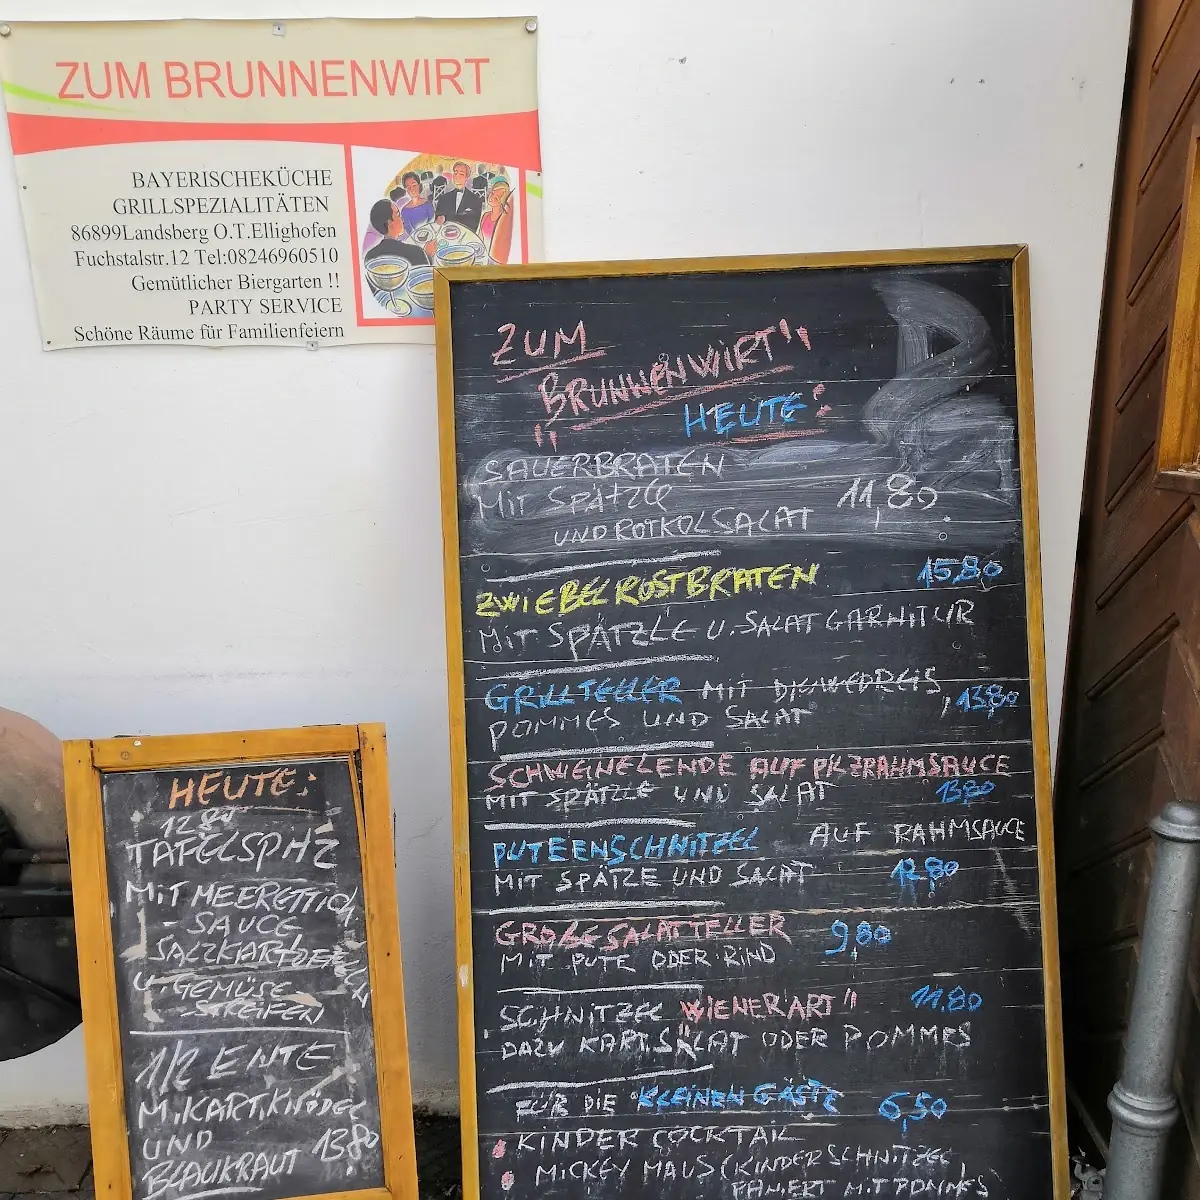 ZUM BRUNNENWIRT
BAYERISCHEKÜCHE
GRILLSPEZIALITÄTEN
86899Landsberg O.T.Ellighofen
Fuchstalstr.12 Tel:08246960510
Gemütlicher Biergarten !!
PARTY SERVICE
Schöne Räume für Familienfeiern
ZUM
BRUNNENWIRT"
" HEUTE:
SAUERBRATEN
MIT SPÄTZLE 11,80
UND ROTKOLSALAT
ZWIEBELROSTBRATEN 15,80
MIT SPÄTZLE U. SALATGARNITUR
GRILLTELLER MIT DJUWEDREIS, 13,80
POMMES UND SALAT
SCHWEINELENDE AUF PILZRAHMSAUCE
MIT SPÄTZLE UND SALAT 13,80
PUTEENSCHNITZEL AUF RAHMSAUCE
MIT SPÄTZE UND SALAT 12,80
GROßE SALATTELLER 9,80
MIT PUTE ODER RIND
SCHNITZEL WIENER ART" 11.80
DAZU KART.SALAT ODER POMMES
FÜR DIE KLEINEN GÄSTE 6,50
KINDER COCKTAIL
MICKEY MAUS (KINDERSCHNITZEL
PANIERT MIT POMMES
HEUTE:
12,80
TAFELSPITZ
MIT MEERETTICH
- SAUCE
SALZKARTOFFELN
U-GEMÜSE
- STREIFEN
1/2 ENTE
M.KART.KNÖDEL
UND 13,80
BLAUKRAUT